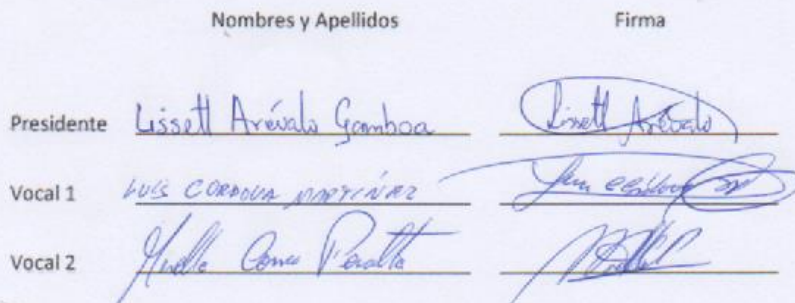 Nombres y Apellidos Firma
Presidente Lissett Arévalo Gamboa Lissett Arévalo
Vocal 1 LUIS CORDOVA MARTÍNEZ
Vocal 2 Peralta